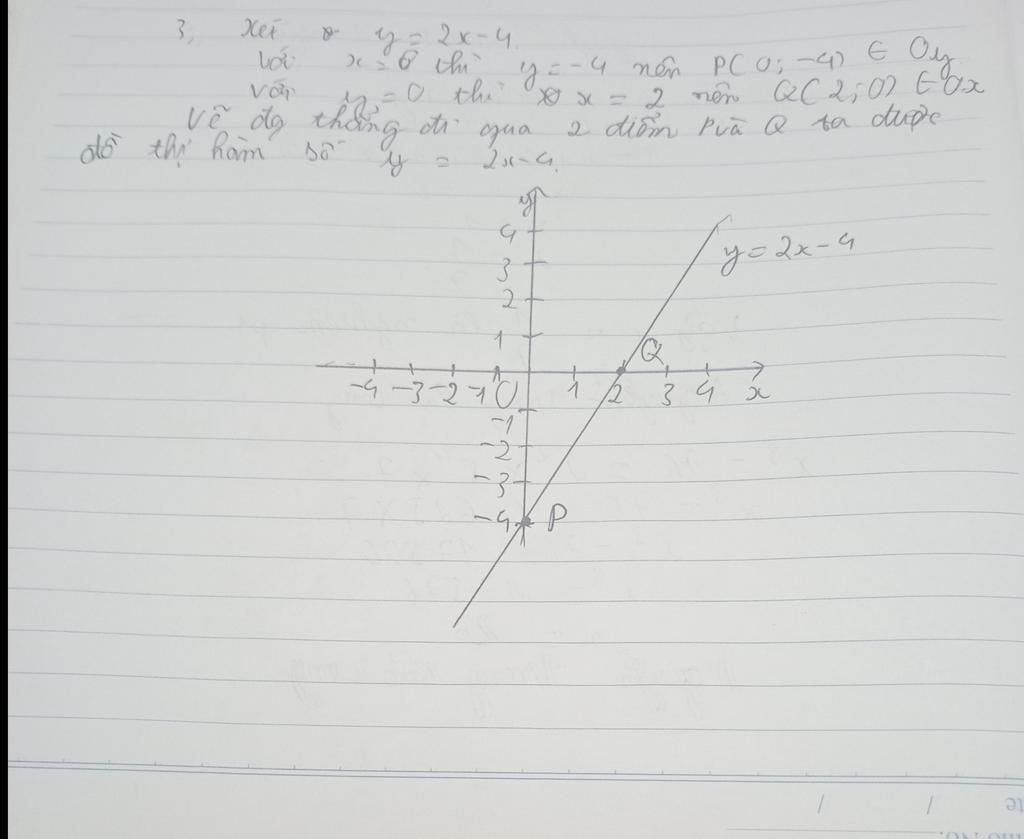 3, Xét y = 2x-4.
Với x = 0 thì y = -4 nên P(0; -4) ∈ Oy
với y = 0 thì x = 2 nên Q(2; 0) ∈ Ox
Vẽ đg thẳng đi qua 2 điểm P và Q ta được
đồ thị hàm số y = 2x-4.
y
4
y = 2x-4
3
2
1
Q
-4 -3 -2 -1 O 1 2 3 4 x
-1
-2
-3
-4 P